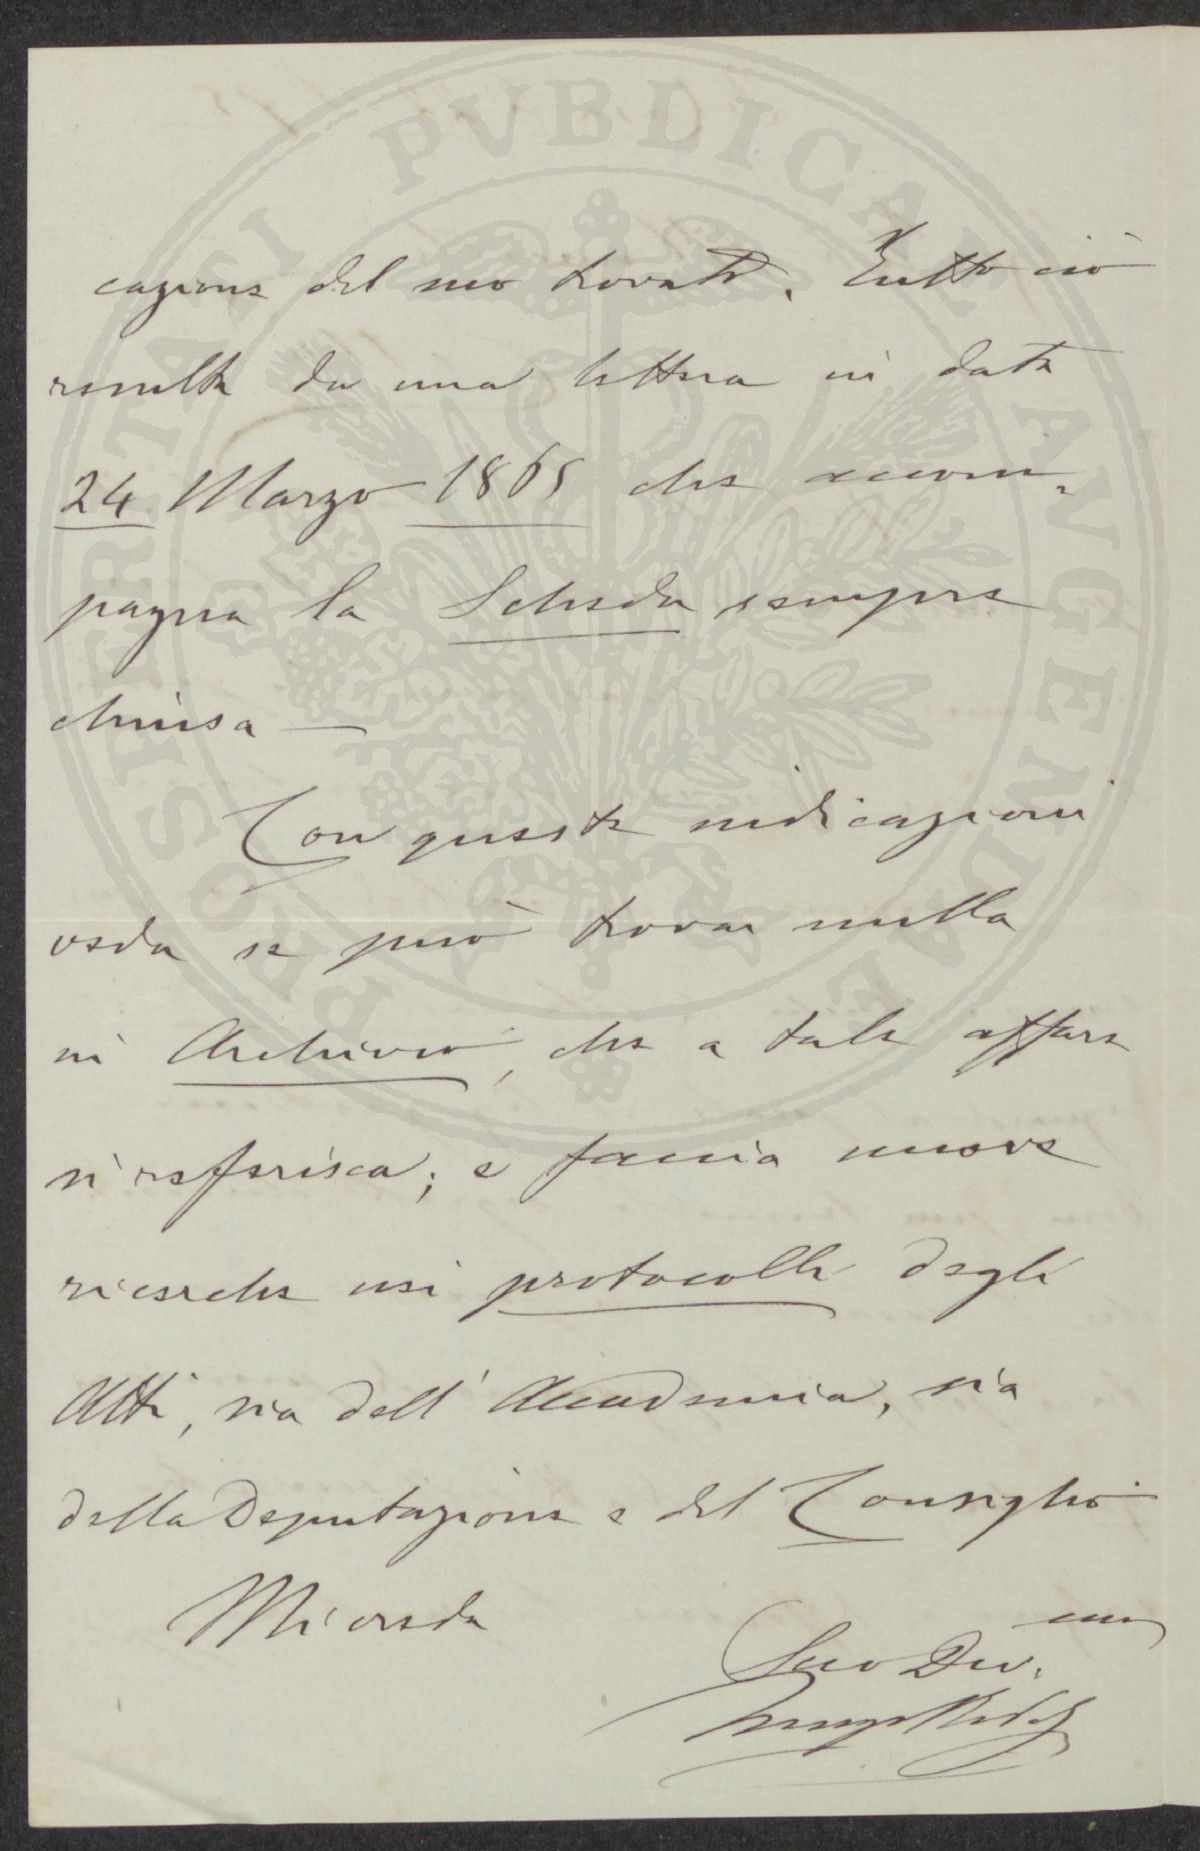 PROSPERITATI PVBLICAE AVGENDAE
cazione del suo trovato. Tutto ciò
resulta da una lettera in data
24 Marzo 1865 che accom-
pagna la Scheda sempre
chiusa —
Con queste indicazioni
veda se può trovar nulla
in Archivio, che a tale affare
si referisca; e faccia nuove
ricerche nei protocolli degli
Atti, sia dell' Accademia, sia
della Deputazione e del Consiglio
Mi creda
Suo Dev.mo